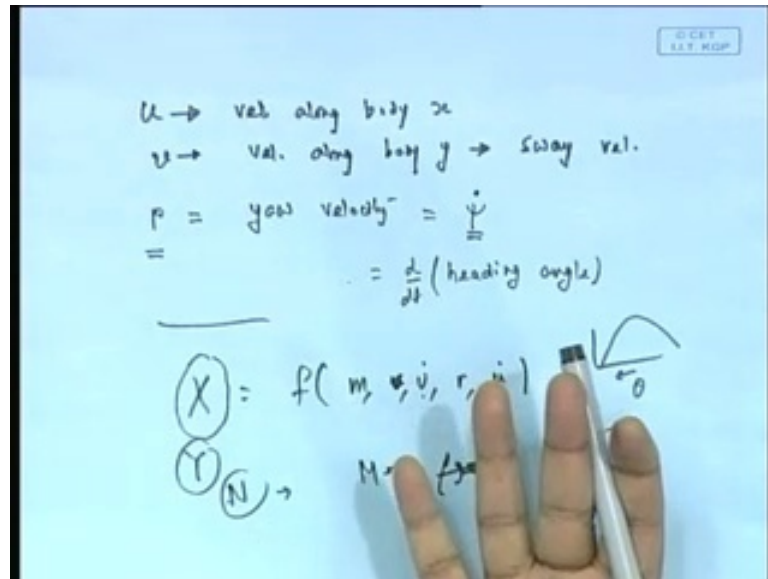 © CET
I.I.T. KGP
u → vel along body x
v → vel. along body y → sway vel.
r = yaw velocity = ψ̇
= d/dt (heading angle)
X = f( m, v, v̇, r,
θ
Y
N →